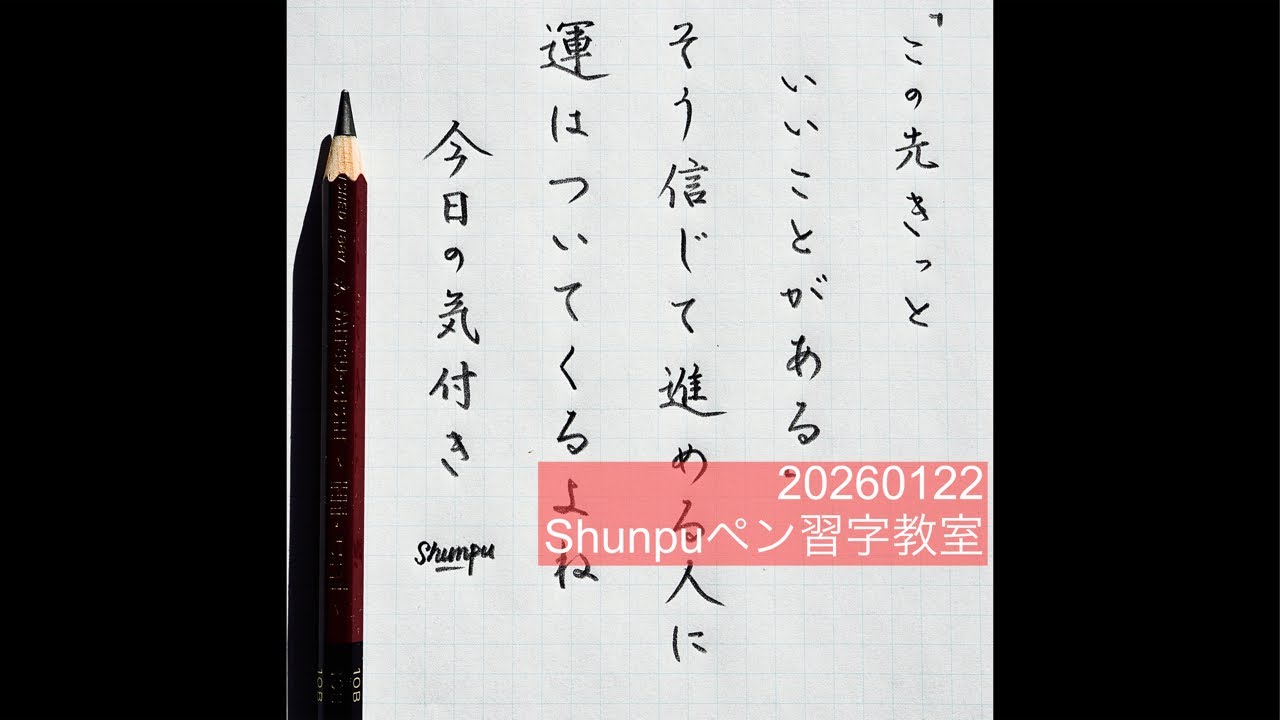 「この先きっと
いいことがある」
そう信じて進める人に
運はついてくるよね
今日の気付き
Shunpu
20260122
Shunpuペン習字教室
10B
10B